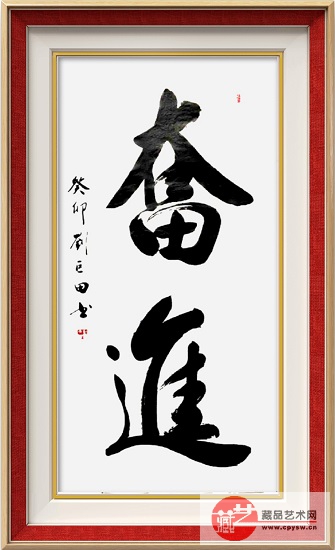 奮進
癸卯劉巨田书
藏品艺术网
www.cpysw.cn